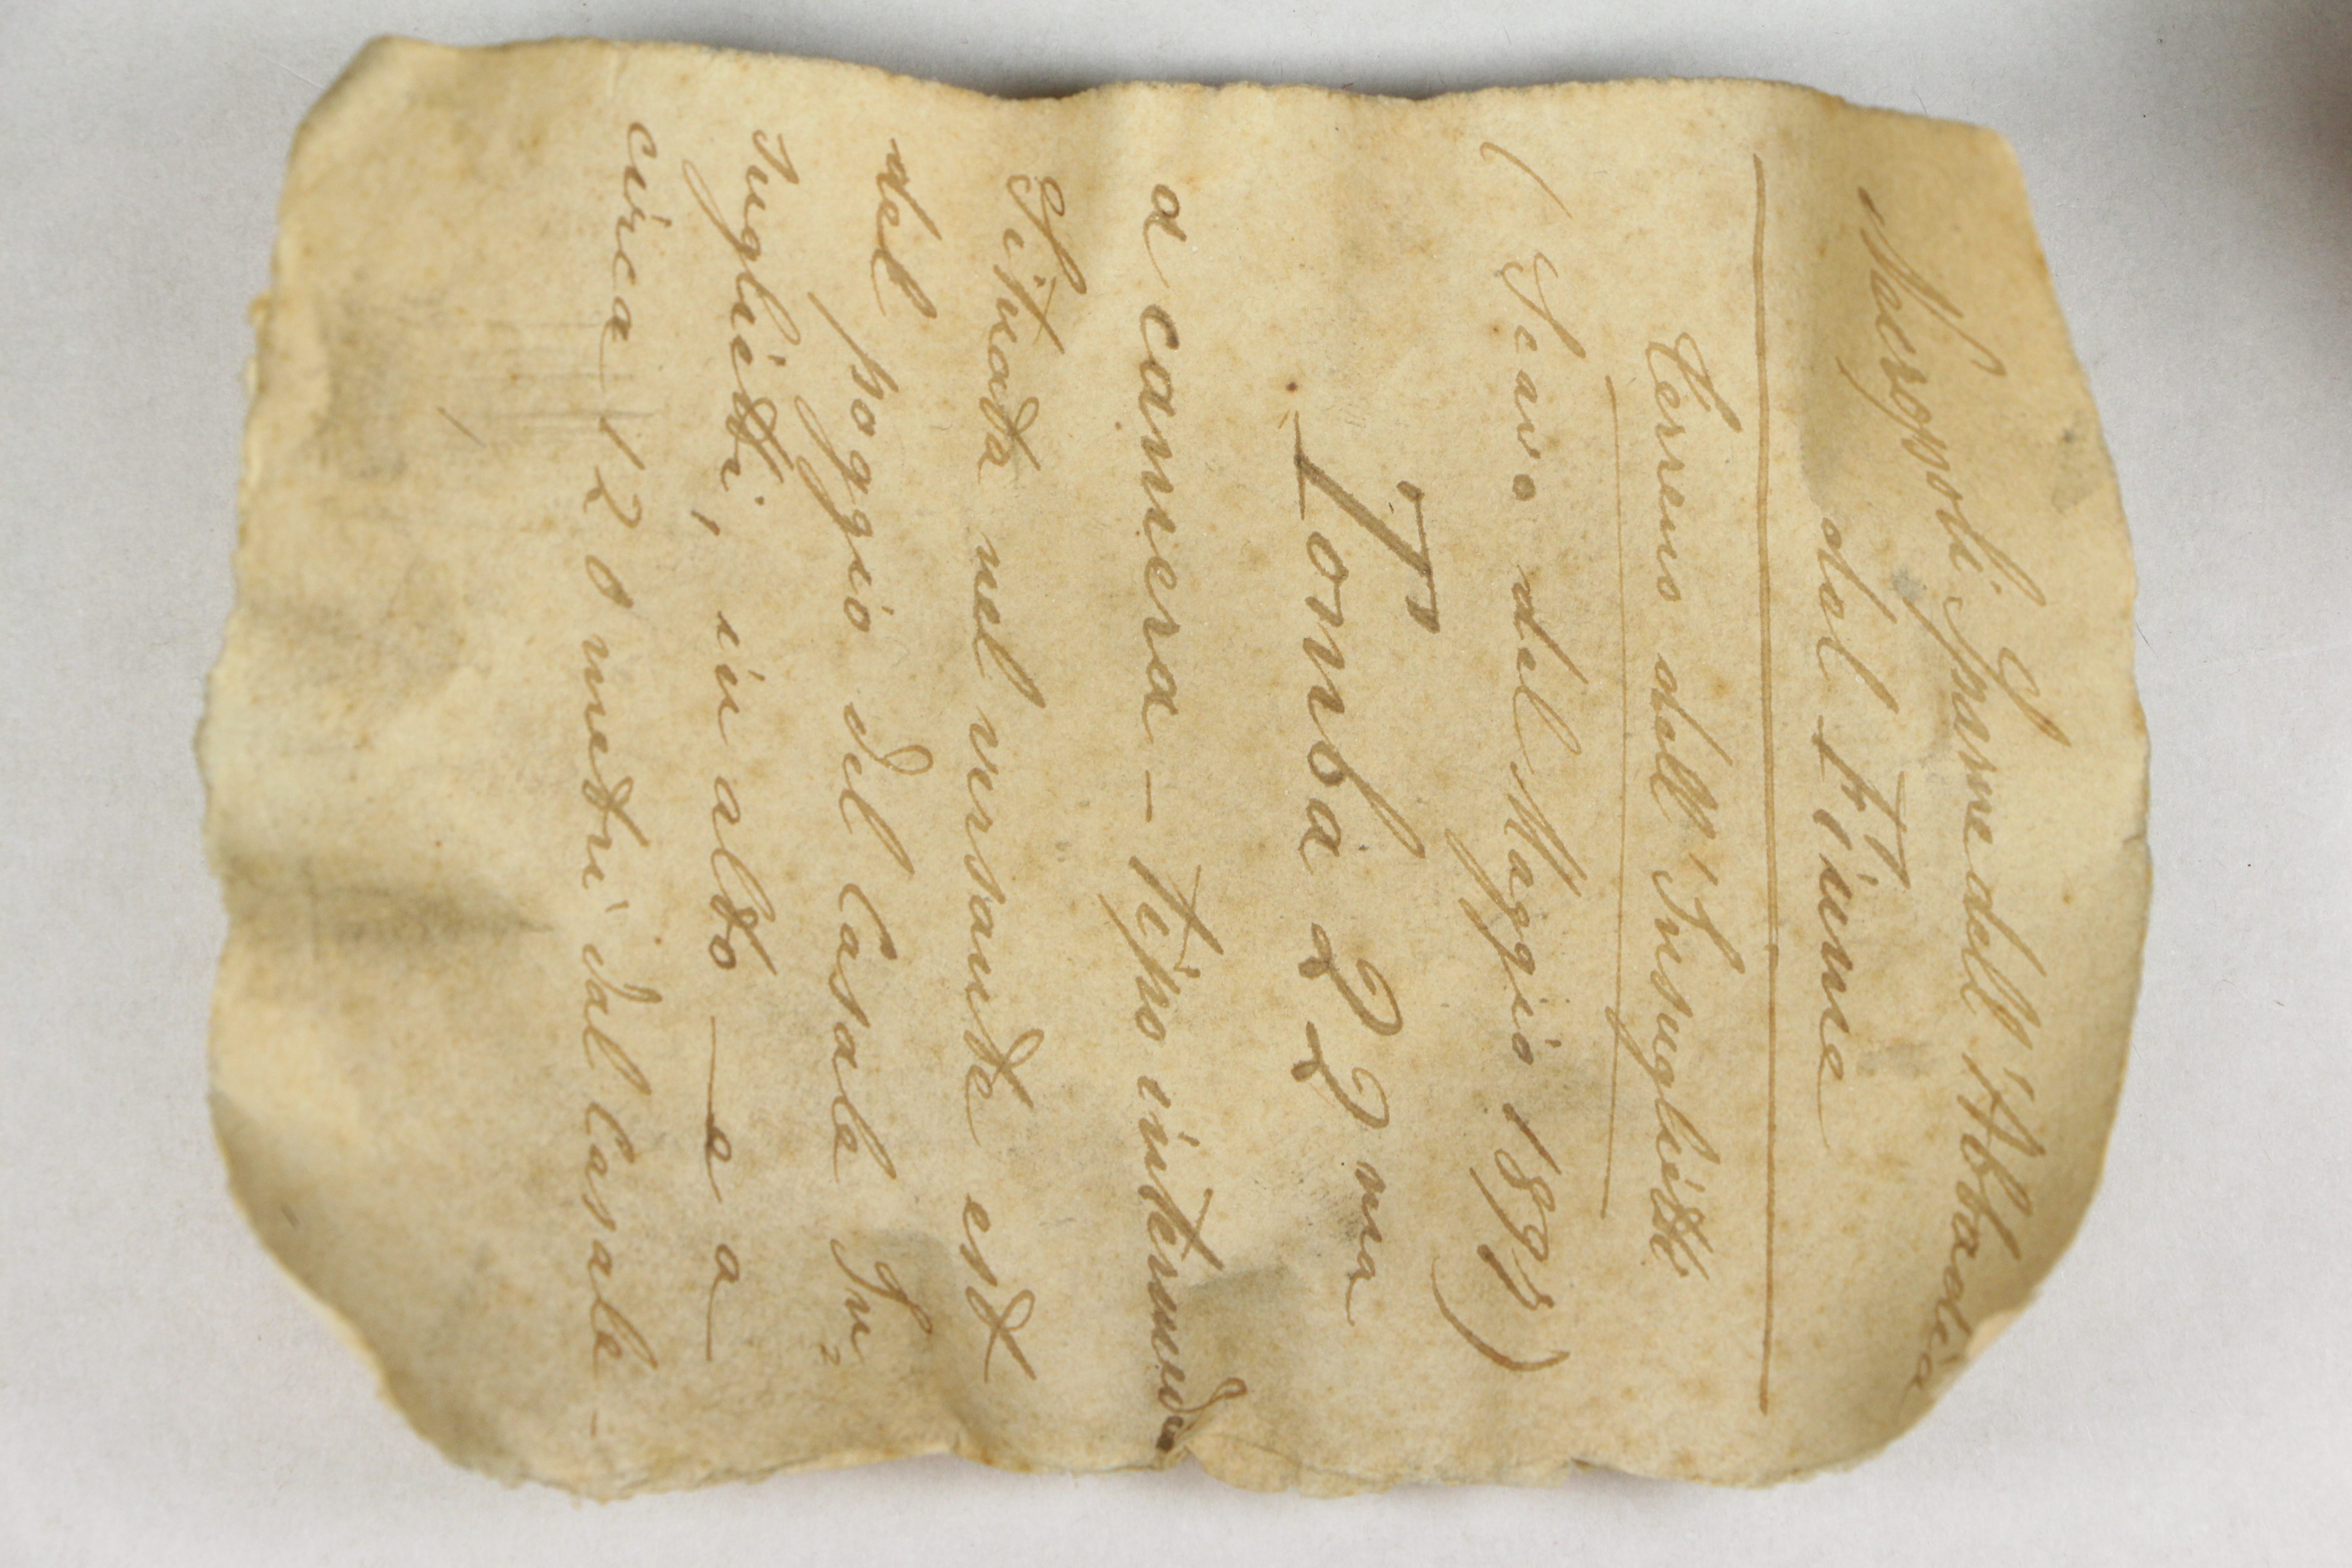 Necropoli Ipsime dell'Abbadia
dal Fiume
Terreno dell'Insuglietti
(Scavo del Maggio 1895)
Tomba 22ma
a camera - tipo intermedio
Situata nel versante est
del poggio del Casale In=
suglietti, in alto — e a
circa 120 metri dal Casale -